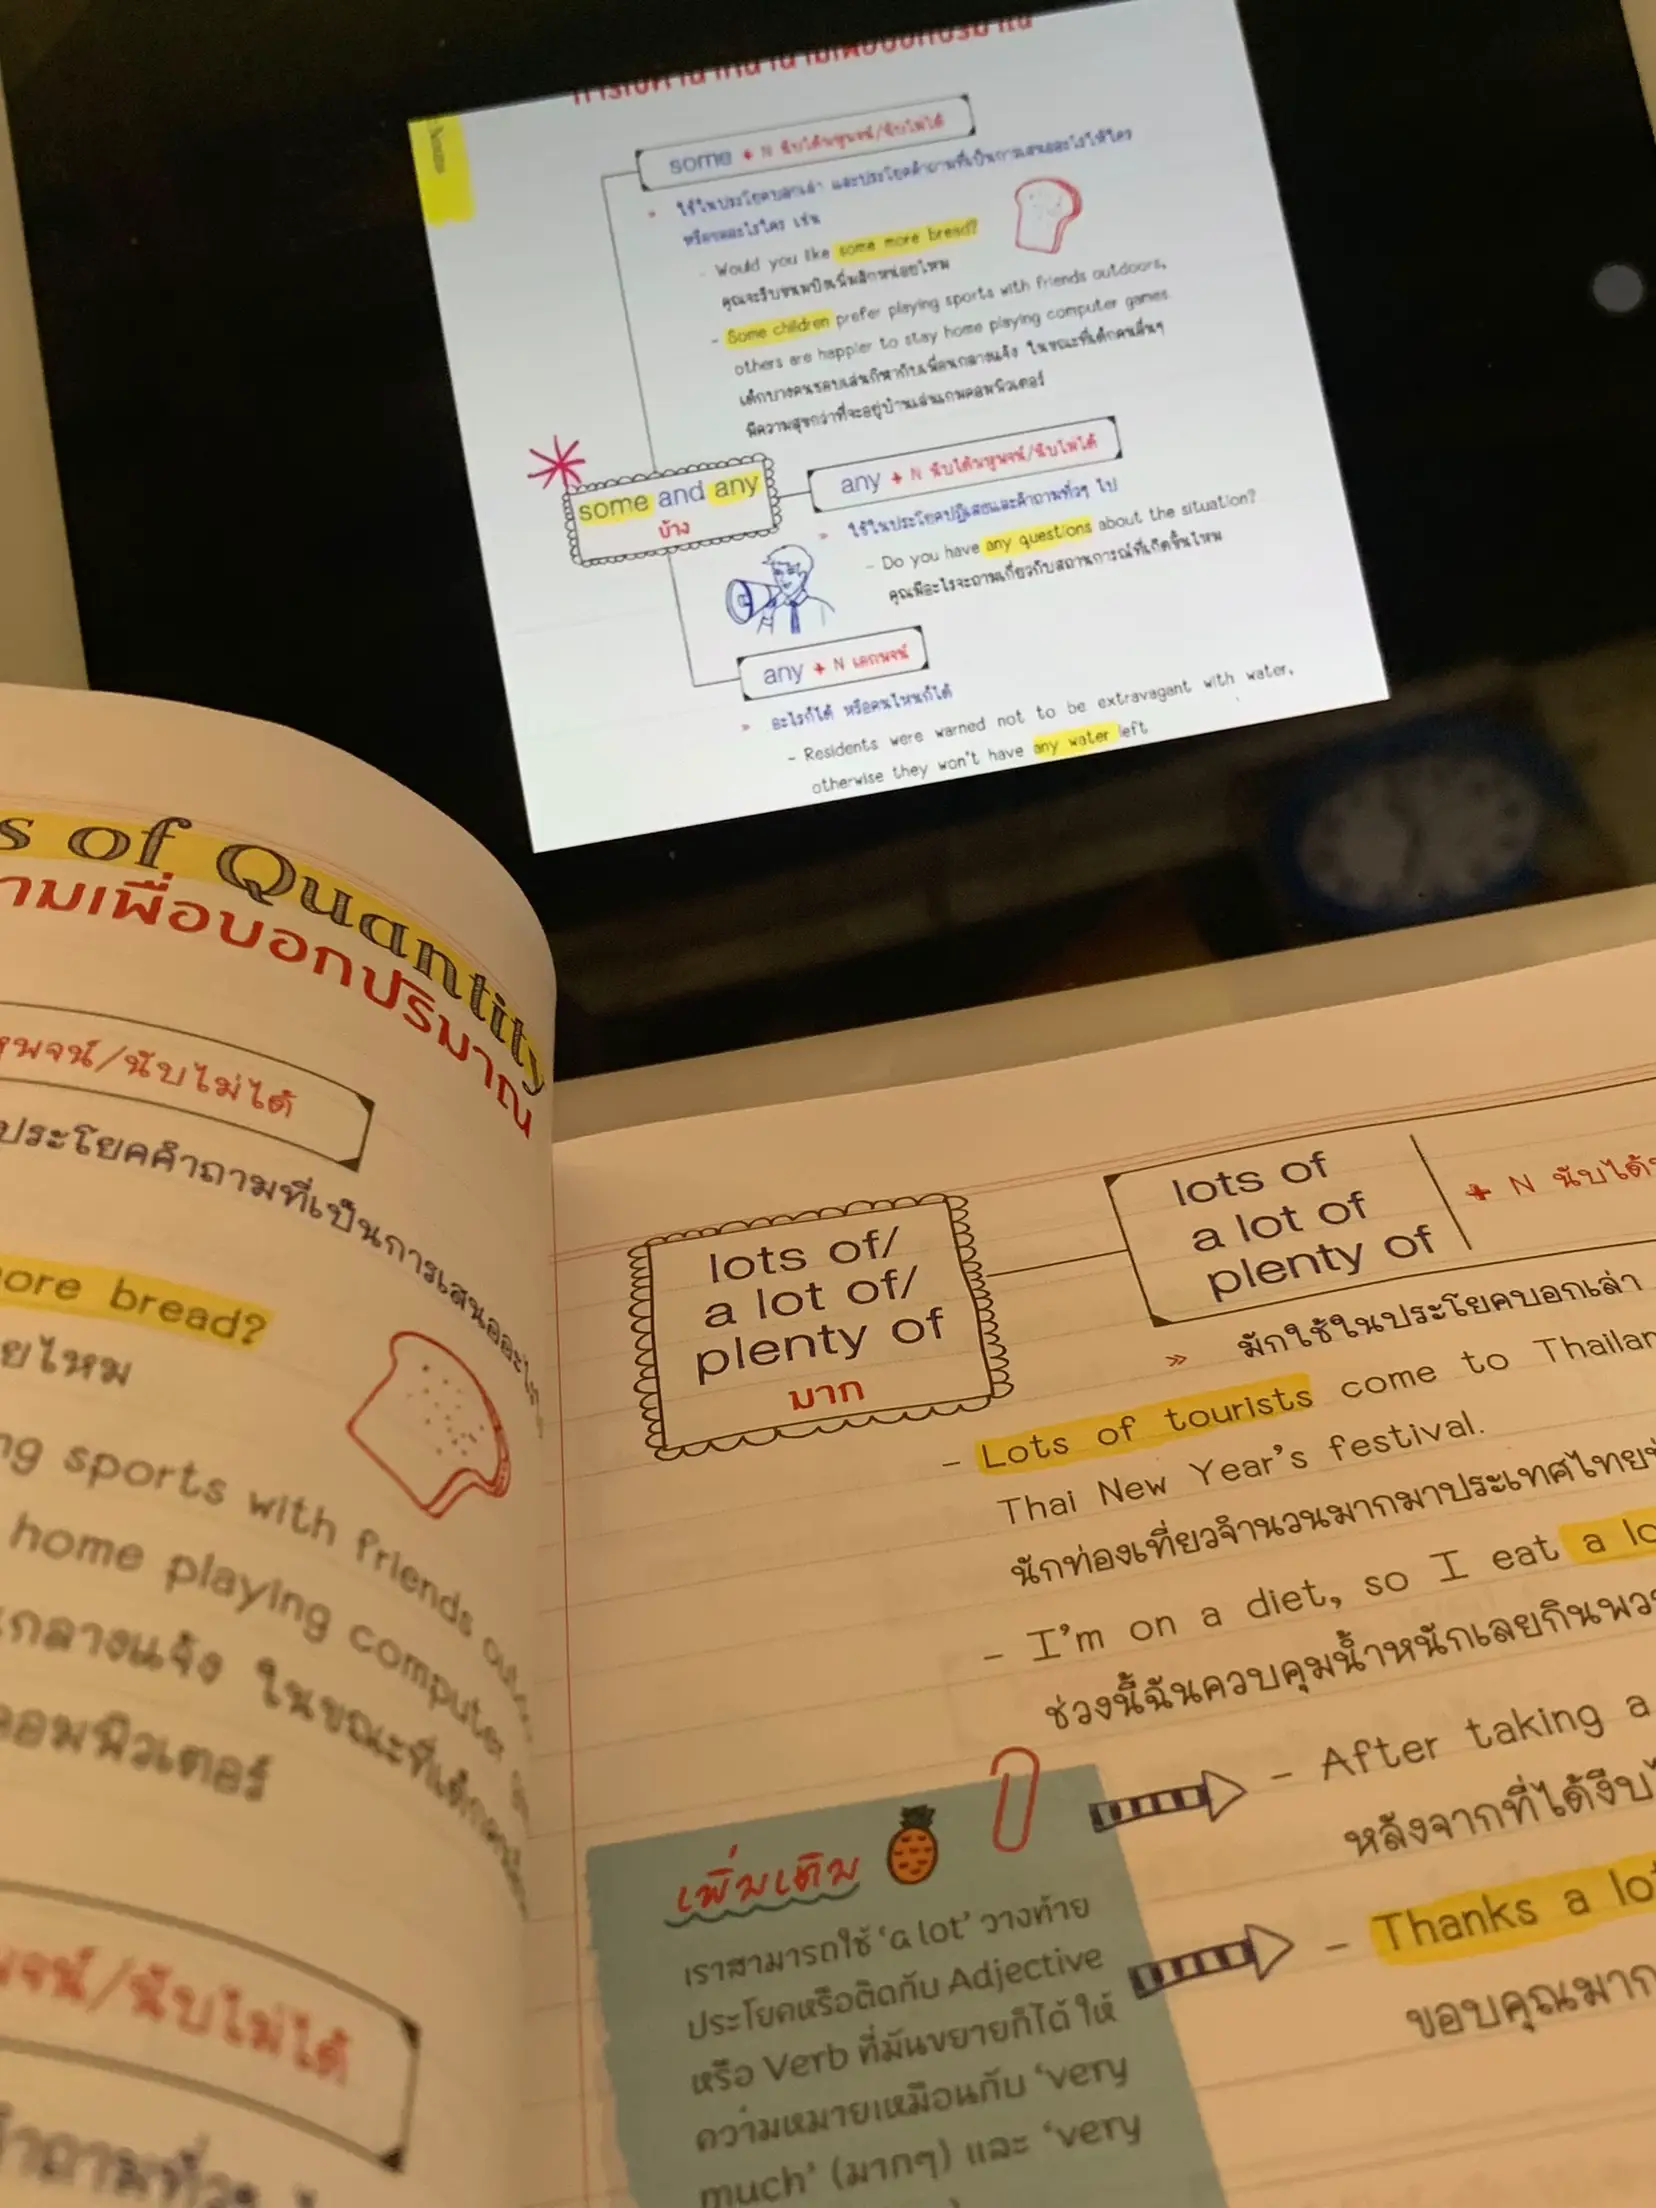 some + N นับได้พหูพจน์/นับไม่ได้
» ใช้ในประโยคบอกเล่า และประโยคคำถามที่เป็นการเสนออะไรให้ใคร
หรือขออะไรใคร เช่น
- Would you like some more bread?
คุณจะรับขนมปังเพิ่มอีกหน่อยไหม
- Some children prefer playing sports with friends outdoors,
others are happier to stay home playing computer games
เด็กบางคนชอบเล่นกีฬากับเพื่อนกลางแจ้ง ในขณะที่เด็กคนอื่นๆ
มีความสุขกว่าที่จะอยู่บ้านเล่นเกมคอมพิวเตอร์
some and any
บ้าง
any + N นับได้พหูพจน์/นับไม่ได้
» ใช้ในประโยคปฏิเสธและคำถามทั่วๆ ไป
- Do you have any questions about the situation?
คุณมีอะไรจะถามเกี่ยวกับสถานการณ์ที่เกิดขึ้นไหม
any + N เอกพจน์
» อะไรก็ได้ หรือคนไหนก็ได้
- Residents were warned not to be extravagant with water,
otherwise they won't have any water left
of Quantity
ามเพื่อบอกปริมาณ
พจน์/นับไม่ได้
ประโยคคำถามที่เป็นการเสนออะไร
more bread?
ยไหม
ng sports with friends
home playing computer
กลางแจ้ง ในขณะที่เด็ก
คอมพิวเตอร์
พจน์/นับไม่ได้
lots of/
a lot of/
plenty of
มาก
lots of
a lot of
plenty of
+ N นับได้
» มักใช้ในประโยคบอกเล่า
- Lots of tourists come to Thailan
Thai New Year's festival.
นักท่องเที่ยวจำนวนมากมาประเทศไทย
- I'm on a diet, so I eat a lo
ช่วงนี้ฉันควบคุมน้ำหนักเลยกินพว
- After taking a
หลังจากที่ได้งีบ
- Thanks a lo
ขอบคุณมาก
เพิ่มเติม
เราสามารถใช้ 'a lot' วางท้าย
ประโยคหรือติดกับ Adjective
หรือ Verb ที่มันขยายก็ได้ ให้
ความหมายเหมือนกับ 'very
much' (มากๆ) และ 'very